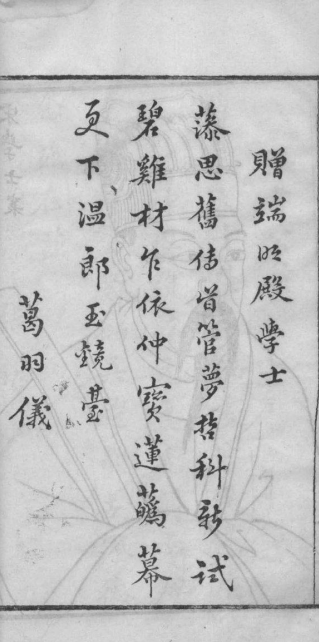 贈端明殿學士
藻思舊傳管夢哲科新試
碧雞材乍依仲寶蓮蘤幕
更下温郎玉鏡臺
葛羽儀